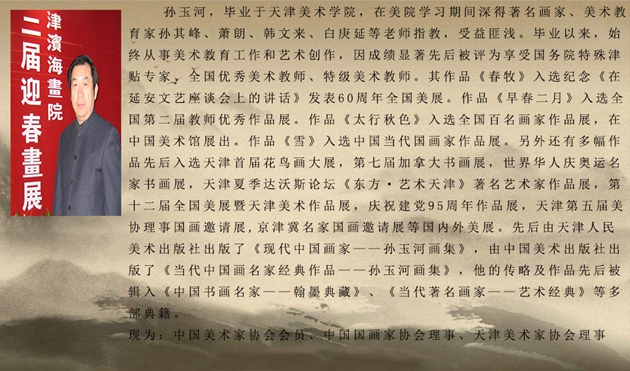 津濱海畫院
二届迎春畫展
孙玉河，毕业于天津美术学院，在美院学习期间深得著名画家、美术教
育家孙其峰、萧朗、韩文来、白庚延等老师指教，受益匪浅。毕业以来，始
终从事美术教育工作和艺术创作，因成绩显著先后被评为享受国务院特殊津
贴专家、全国优秀美术教师、特级美术教师。其作品《春牧》入选纪念《在
延安文艺座谈会上的讲话》发表60周年全国美展。作品《早春二月》入选全
国第二届教师优秀作品展。作品《太行秋色》入选全国百名画家作品展，在
中国美术馆展出。作品《雪》入选中国当代国画家作品展。另外还有多幅作
品先后入选天津首届花鸟画大展，第七届加拿大书画展，世界华人庆奥运名
家书画展，天津夏季达沃斯论坛《东方·艺术天津》著名艺术家作品展，第
十二届全国美展暨天津美术作品展，庆祝建党95周年作品展，天津第五届美
协理事国画邀请展,京津冀名家国画邀请展等国内外美展。先后由天津人民
美术出版社出版了《现代中国画家——孙玉河画集》，由中国美术出版社出
版了《当代中国画名家经典作品——孙玉河画集》，他的传略及作品先后被
辑入《中国书画名家——翰墨典藏》、《当代著名画家——艺术经典》等多
部典籍。
现为：中国美术家协会会员、中国国画家协会理事、天津美术家协会理事